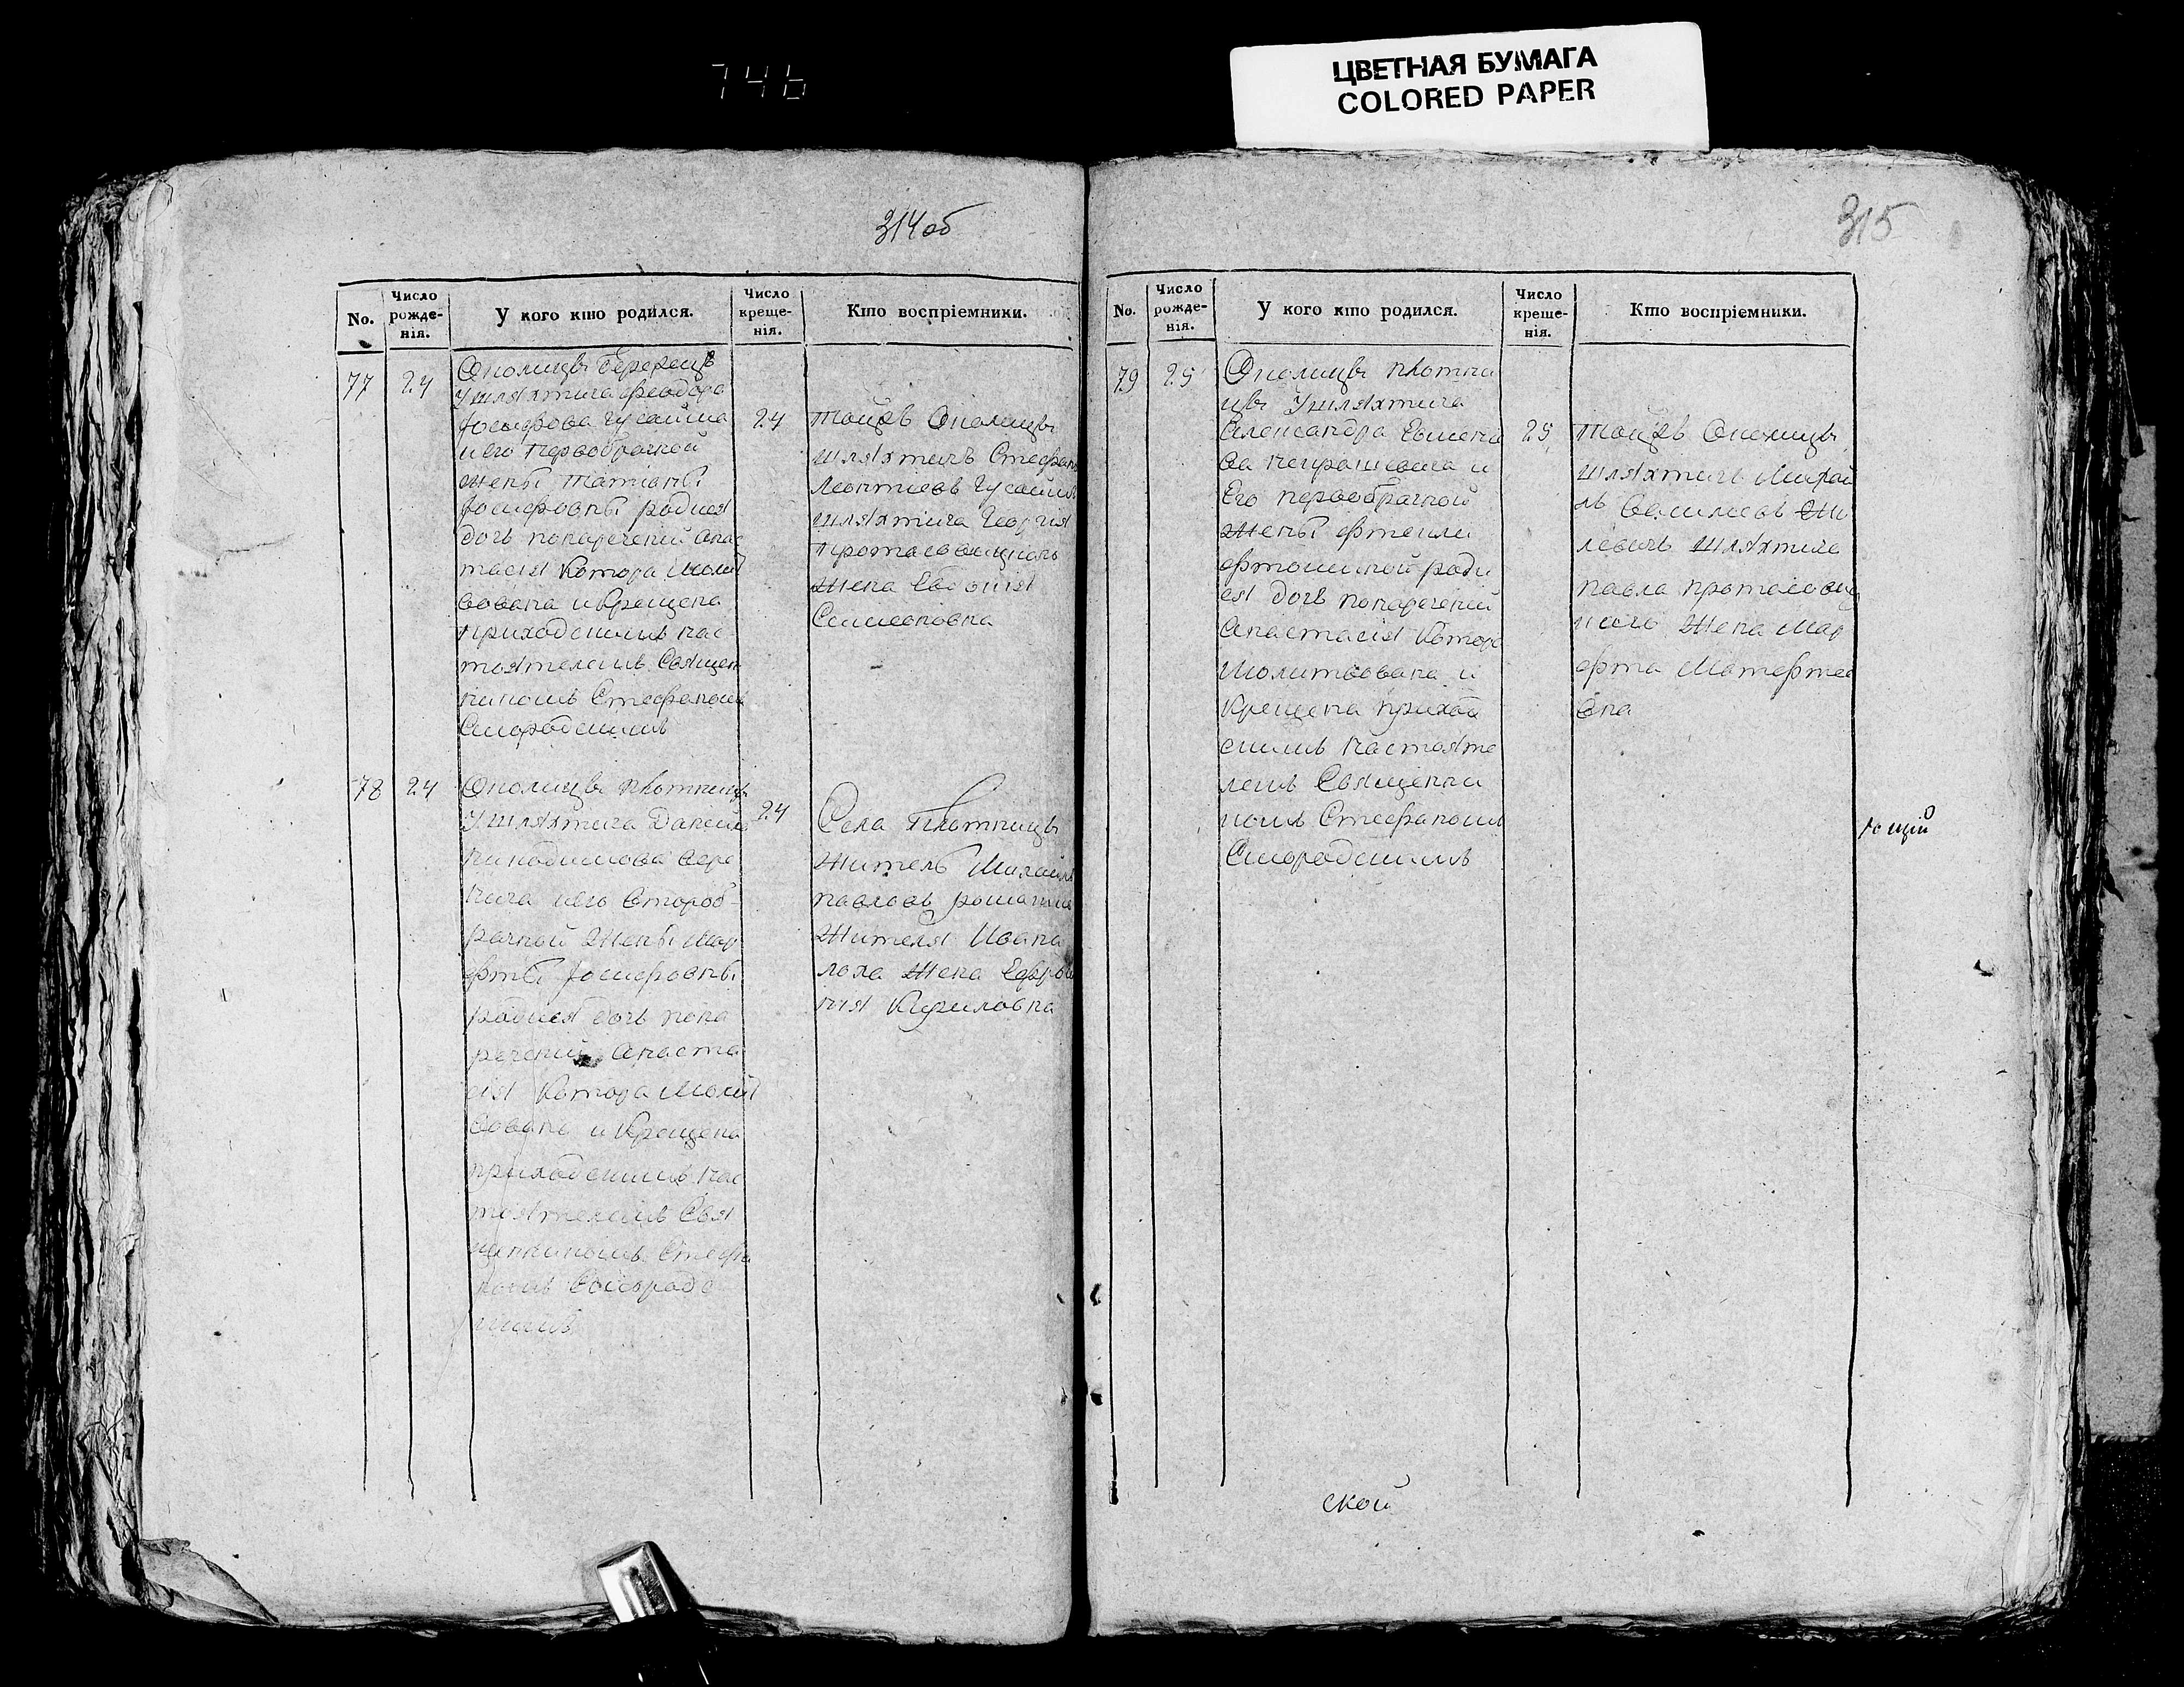 746
ЦВЕТНАЯ БУМАГА
COLORED PAPER
314об
No.
Число рожде- нія.
У кого кто родился.
Число креще- нія.
Кто воспріемники.
77
24
Околицы Бережцъ
У шляхтича Феодора
Іосифова Гусаима
и его Первобрачной
жены Татіаны
Іосифовны родися
дочь понареченій Анас
тасія Котора Молит
вована и Крещена
Приходскимъ Нас
тоятелемъ Священ
никомъ Стефаномъ
Смородскимъ
24
тойжъ Околицы
шляхтичъ Стефанъ
Леонтиевъ Гусаимъ
шляхтича Георгія
жена Евдокія
Симеоновна
78
24
Околицы Плотницы
У шляхтича
Никодимова Вере
нича и его Второб-
рачной Жены Мар
фты Іосифовны
родися дочь пона
реченій Анаста
сія Котора Молит
вована и Крещена
приходскимъ Нас
тоятелемъ Свя
щенникомъ Стефа
номъ Сморадс
кимъ
24
Села Плотницы
Житель Михаилъ
павловъ
Жителя Ивана
жена Ефро
нія Кириловна
315
No.
Число рожде- нія.
У кого кто родился.
Число креще- нія.
Кто воспріемники.
79
25
Околицы плотни
цы У шляхтича
Александра Евсеніе
ва и
Его первобрачной
жены
роди
ся дочь понареченій
Анастасія Котора
Молитвована и
Крещена приход
скимъ Настояте
лемъ Священни
комъ Стефаномъ
Смородскимъ
25
тойжъ Околицы
шляхтичъ Михаи
лъ Василиевъ
левичъ шляхтича
павла
жена Мар
фта
вна
ющій
ской